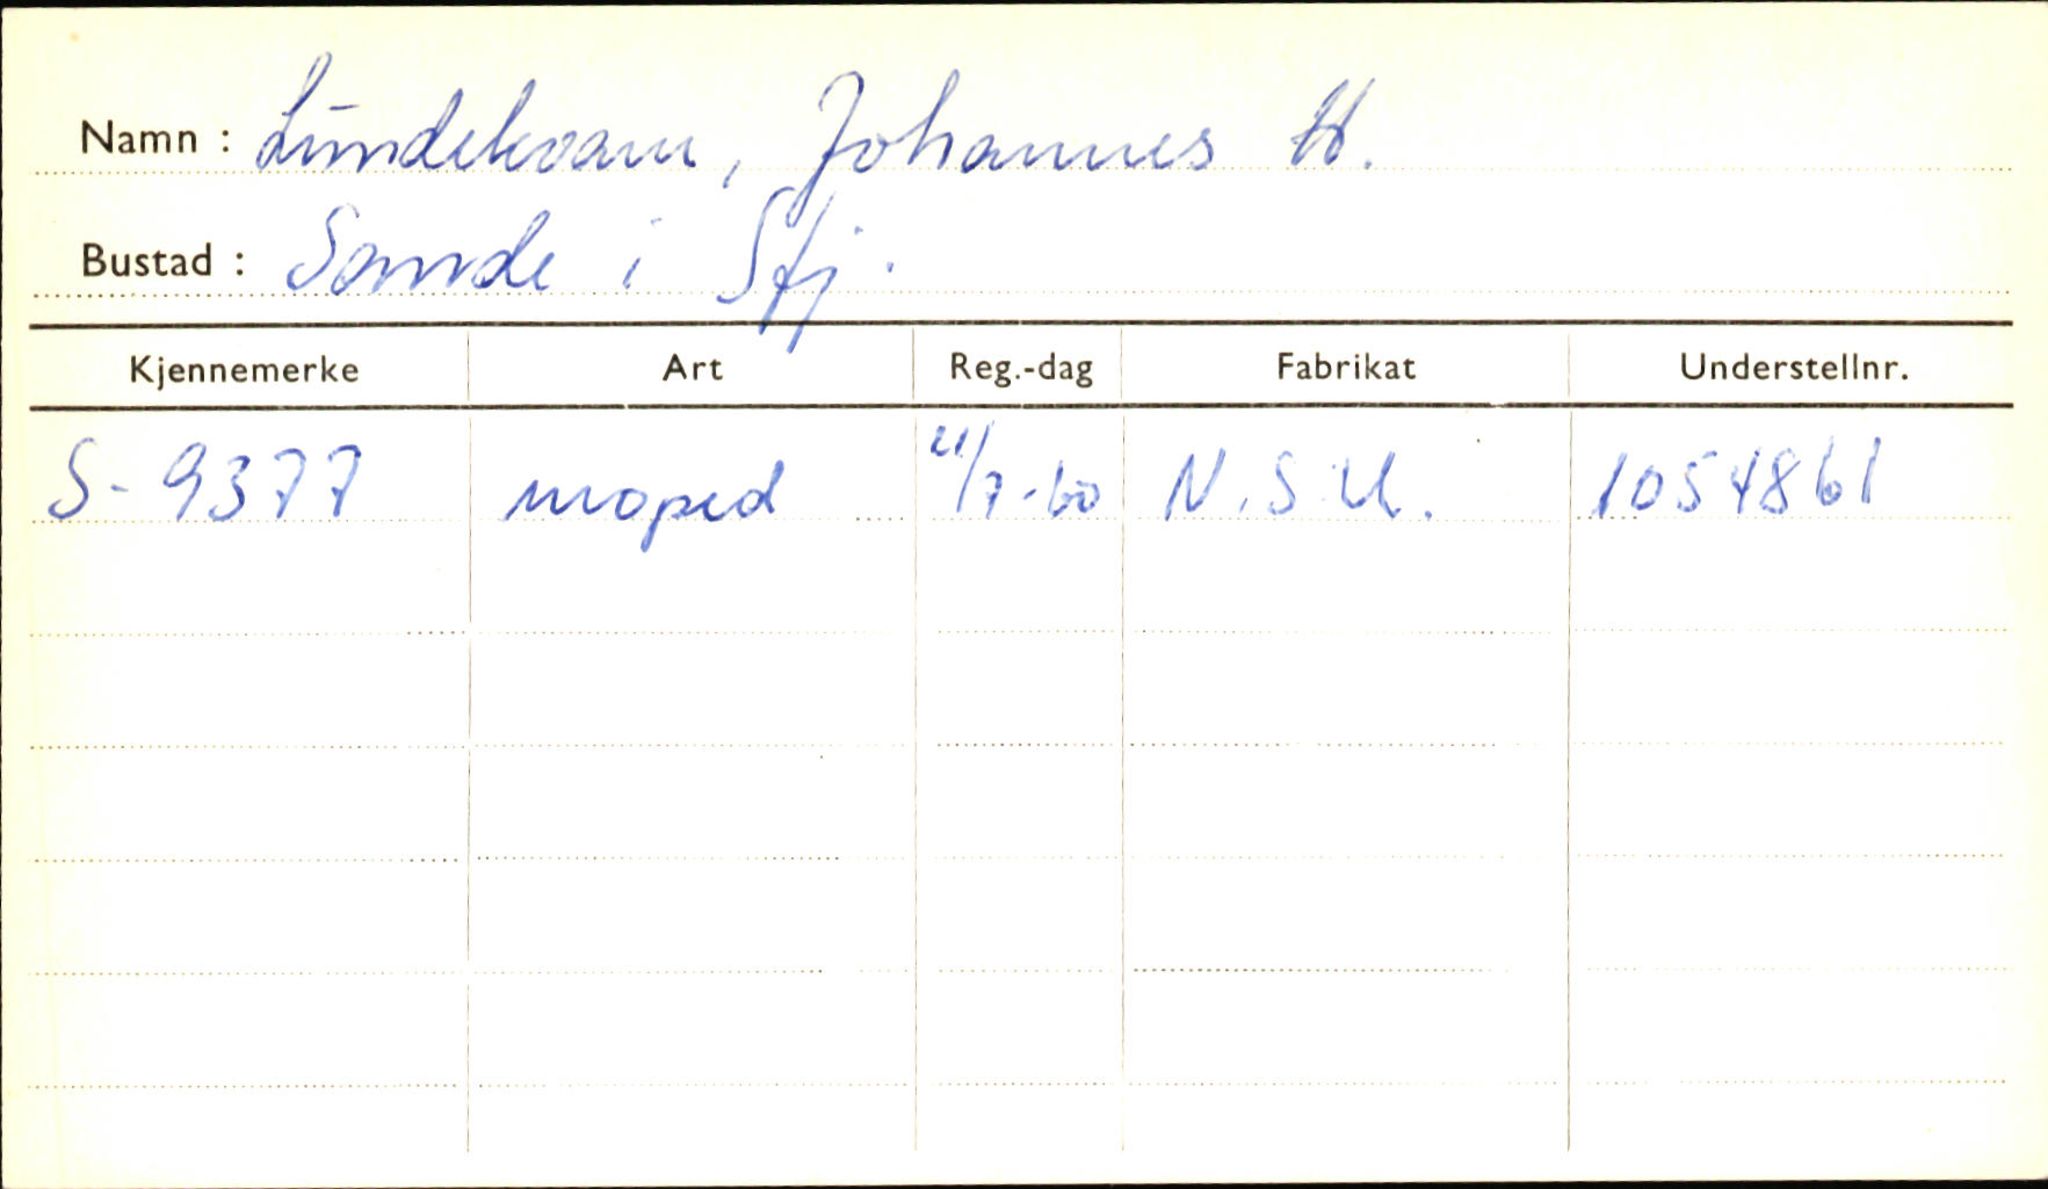 Namn : Lundekvam, Johannes H.
Bustad : Sande i Sfj.
Kjennemerke Art Reg.-dag Fabrikat Understellnr.
S-9377 moped 21/7-60 N.S.U. 1054861